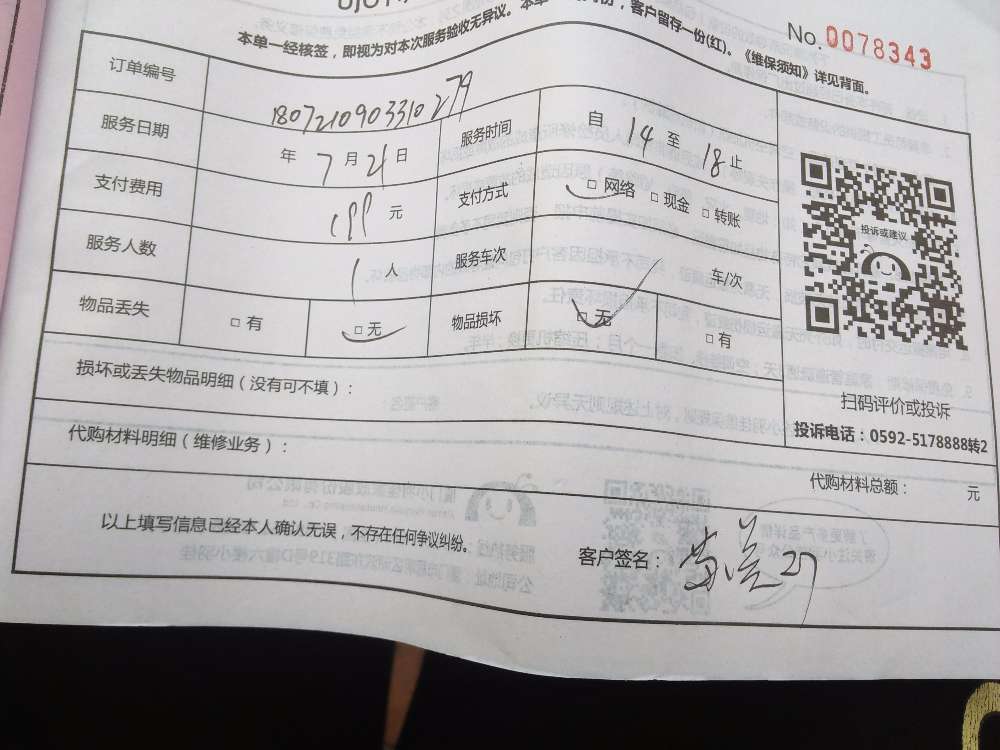 No. 0078343
本单一经核签，即视为对本次服务验收无异议。本单 客户留存一份(红)。《维保须知》详见背面。
订单编号 1807210903310279
服务日期 年 7 月 21 日 服务时间 自 14 至 18 止
支付费用 199 元 支付方式 □ 网络 □ 现金 □ 转账
服务人数 1 人 服务车次 车/次
物品丢失 □ 有 □ 无 物品损坏 □ 无 □ 有
投诉或建议
扫码评价或投诉
投诉电话：0592-5178888转2
损坏或丢失物品明细（没有可不填）：
代购材料明细（维修业务）：
代购材料总额： 元
以上填写信息已经本人确认无误，不存在任何争议纠纷。
客户签名：